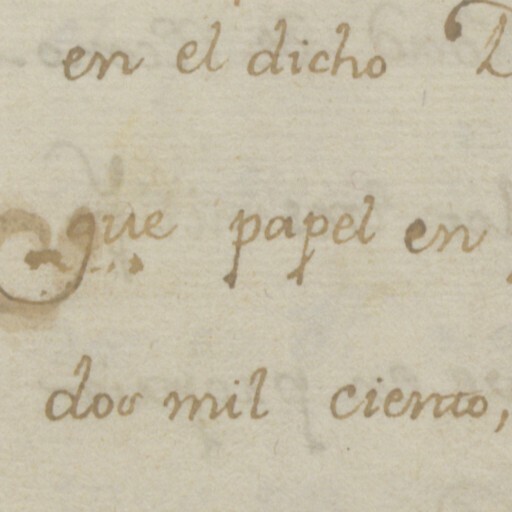 en el dicho
que papel en
dos mil ciento,